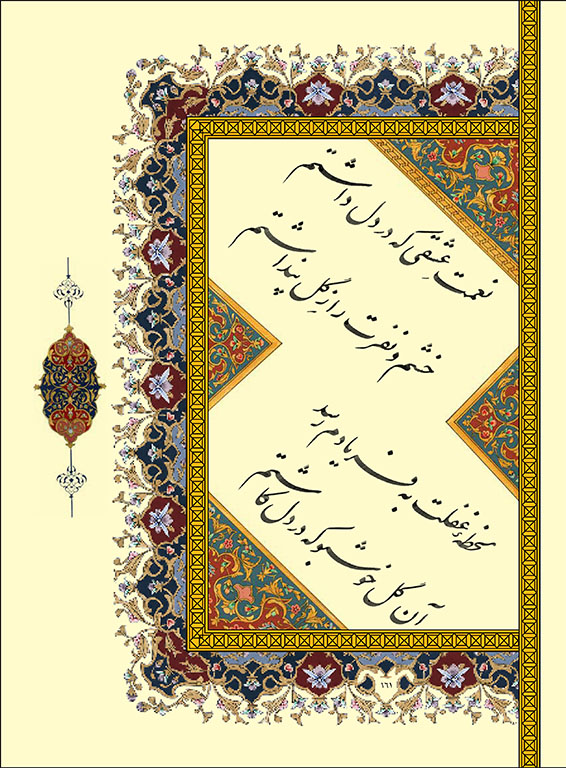 نعمتِ عشقی که در دل داشتم
خشم و نفرت را ز گِل پنداشتم
لحظهٔ غفلت به فریادم رسید
آن گل خوشبو که در دل کاشتم
۱۶۱